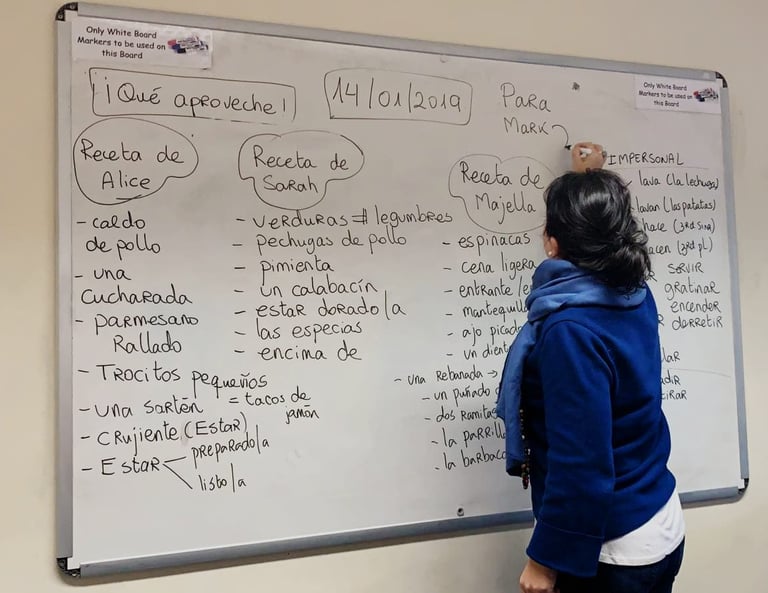 Only White Board
Markers to be used on
this Board
Only White Board
Markers to be used on
this Board
¡¡Qué aproveche!
14/01/2019
Para
Mark
Receta de
Alice
- caldo
de pollo
- una
cucharada
- parmesano
Rallado
- Trocitos pequeños
= tacos de
jamón
- una sartén
- crujiente (Estar)
- Estar
preparado/a
listo/a
Receta de
Sarah
- verduras ≠ legumbres
- pechugas de pollo
- pimienta
- un calabacín
- estar dorado/a
- las especias
- encima de
Receta de
Majella
- espinacas
- cena ligera
- entrante
- mantequilla
- ajo picado
- un
- una rebanada →
- un puñado
- dos ramitas
- la
- la
IMPERSONAL
lava (la lechuga)
lavan (las patatas)
hace (3rd sing)
(3rd pl)
servir
gratinar
encender
derretir